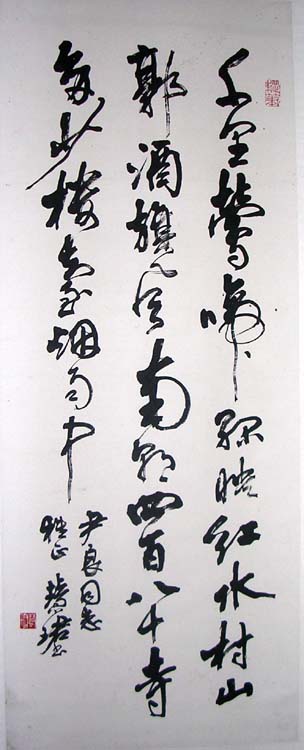 千里鶯啼綠映紅水村山
郭酒旗風南朝四百八十寺
多少樓臺烟雨中
尹良同志
雅正